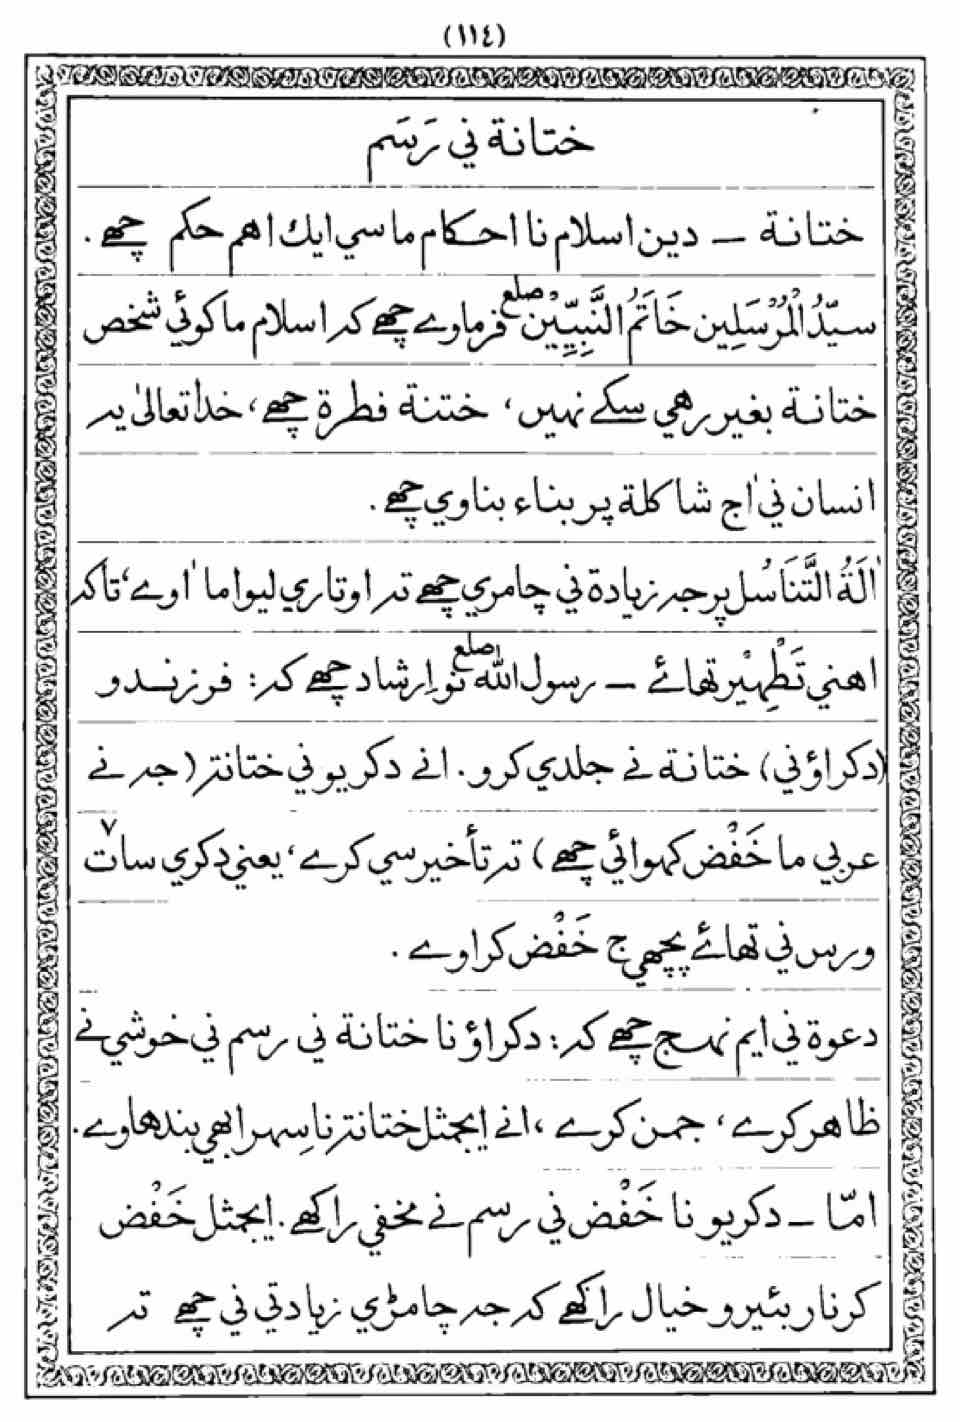 (١١٤)
ختانة ني رَسَم
ختانة ــ دين اسلام نا احكام ما سي ايك اهم حكم چھے.
سيّدُ الْمُرْسَلِين خَاتَمُ النَّبِيِّيْن صلع فرماوے چھے كہ اسلام ما كوئي شخص
ختانة بغير رهي سكے نهيں، ختنة فطرة چھے، خدا تعالىٰ يہ
انسان ني اٰج شاكلة پر بناء بناوي چھے.
اٰلَةُ التَّنَاسُل پر جہ زيادة ني چامري چھے تہ اوتاري ليوا ما اٰوے، تاكہ
اهني تَطْهِيْر تھائے ــ رسول الله صلع نو اِرشاد چھے كہ: فرزندو
(دكراؤ ني) ختانة نے جلدي كرو. انے دكريو ني ختانة (جہ نے
عربي ما خَفْض كهوائي چھے) تہ تأخير سي كرے، يعني دكري سات ٧
ورس ني تھائے پچھي ج خَفْض كراوے.
دعوة ني ايم نهج چھے كہ: دكراؤ نا ختانة ني رسم ني خوشي نے
ظاهر كرے، جمن كرے، انے ايجمثل ختانة نا سِهرا بھي بندهاوے.
امّا ــ دكريو نا خَفْض ني رسم نے مخفي راكھے. ايجمثل خَفْض
كرنار بئيرو خيال راكھے كہ جہ چامڑي زيادتي ني چھے تہ